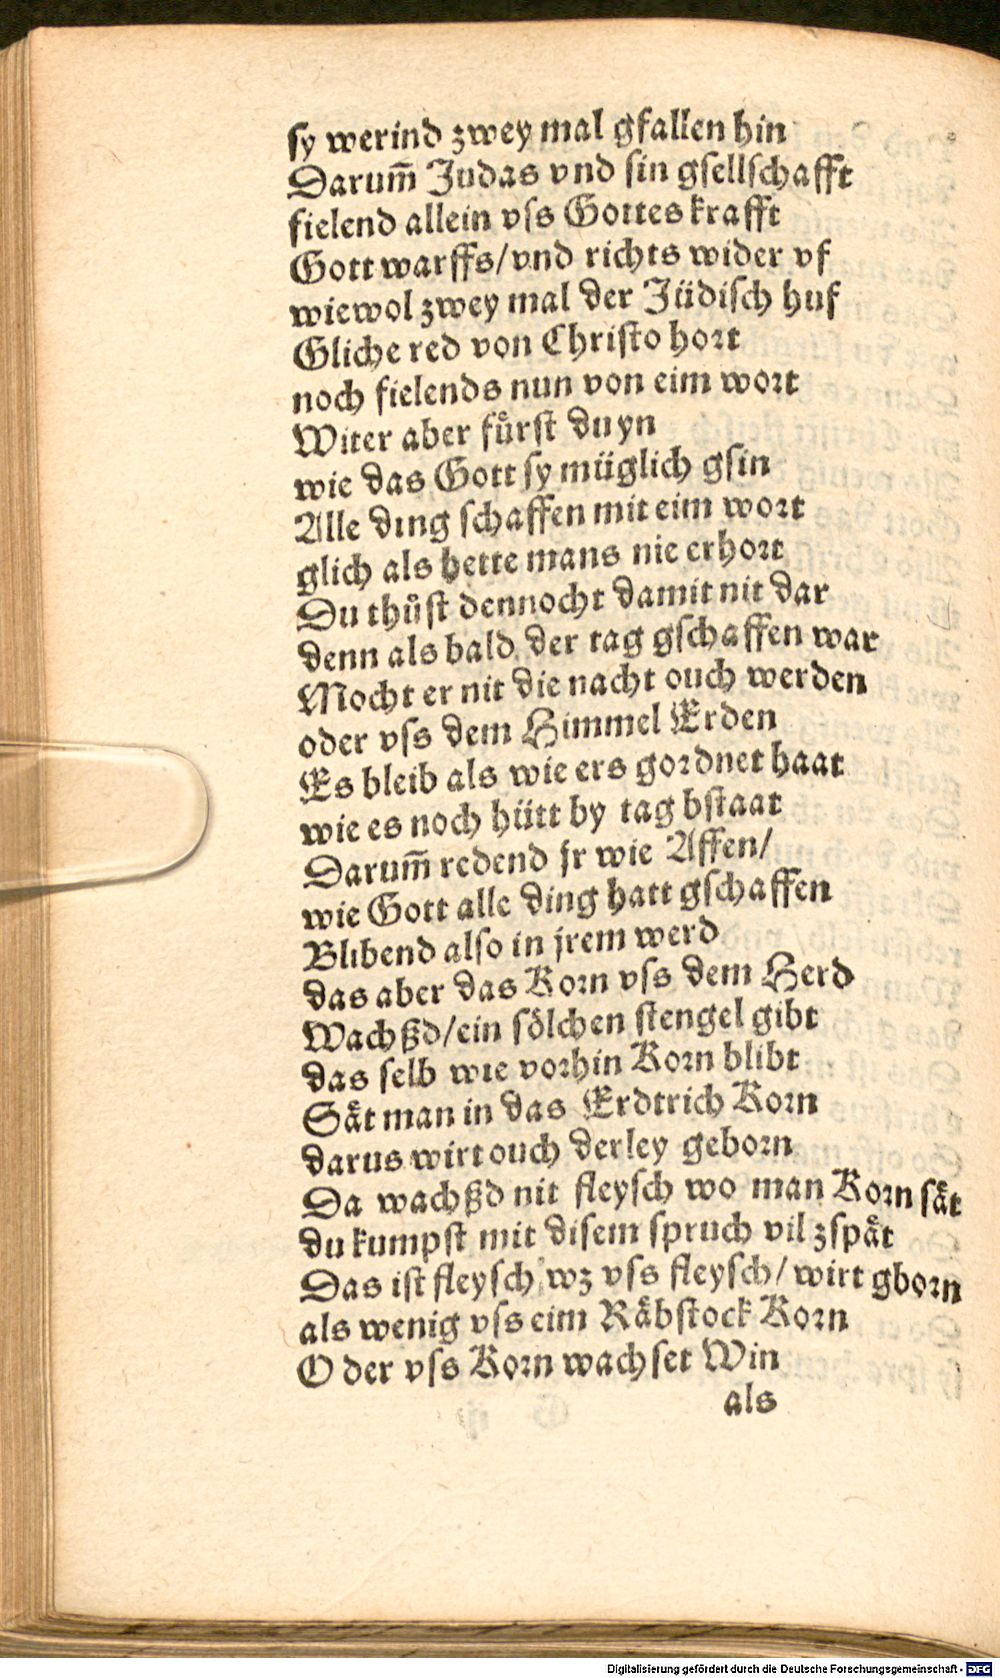 sy werind zwey mal gfallen hin
Darum̄ Judas vnd sin gsellschafft
fielend allein vss Gottes krafft
Gott warffs/vnd richts wider vf
wiewol zwey mal der Jüdisch huf
Gliche red von Christo hort
noch fielends nun von eim wort
Witer aber fůrst du yn
wie das Gott sy müglich gsin
Alle ding schaffen mit eim wort
glich als hette mans nie erhort
Du thůst dennocht damit nit dar
denn als bald der tag gschaffen war
Mocht er nit die nacht ouch werden
oder vss dem Himmel Erden
Es bleib als wie ers gordnet haat
wie es noch hütt by tag bstaat
Darum̄ redend jr wie Affen/
wie Gott alle ding hatt gschaffen
Blibend also in jrem werd
das aber das Korn vss dem Herd
Wachßd/ein sölchen stengel gibt
das selb wie vorhin Korn blibt
Sät man in das Erdtrich Korn
darus wirt ouch derley geborn
Da wachßd nit fleysch wo man Korn sät
du kumpst mit disem spruch vil zspät
Das ist fleysch wz vss fleysch/wirt gborn
als wenig vss eim Räbstock Korn
Oder vss Korn wachset Win
als
Digitalisierung gefördert durch die Deutsche Forschungsgemeinschaft - DFG